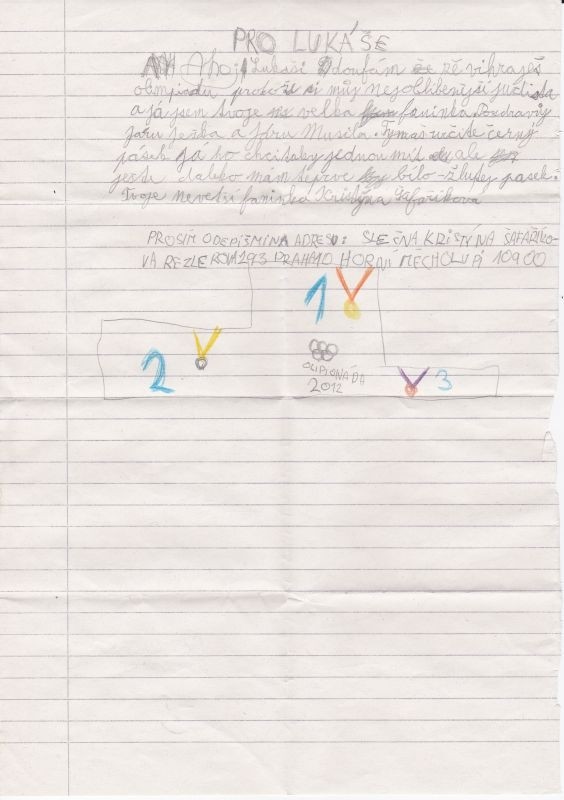 PRO LUKÁŠE
Ahoj Lukaši doufám že vihraješ
olimpiadu protože si můj nejoblibenější judista
a já jsem tvoje velka faninka. Pozdravuj
Jaru Ježka a Járu Musila. Ty maš určitě černý
pásek já ho chci taky jednou mít ale
je daleko mám teprve bílo-žlutej pasek.
Tvoje nevetší faninka Kristýna Šafaříkova
PROSÍM ODEPIŠ MI NA ADRESU: SLEČNA KRISTÝNA ŠAFAŘÍKO-
VA REZLEKOVA 293 PRAHA 10 HORNÍ MECHOLUPI 10900
1
2
OLIPIONÁDA
2012
3